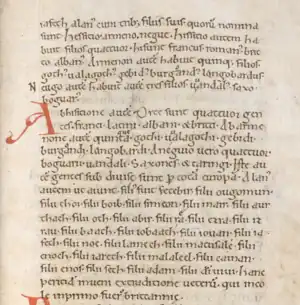 iafeth alan' cum trib; filiis suis quorū nomina
sunt hessitio. armeno. negue. hissitio autem ha
buit filios quattuor. hi sunt francus. roman'. brit
to. alban'. Armenon aut habuit quinq; filios
goth'. ualagoth'. gebid'. burgand'. langobardus
N eugo aute habuit aute tres filios. uandal'. saxo.
boguar'.
Ab hisitione aute orte sunt quattuor gen
tes. franci. latini. albani. & britti. Ab arme
none aute quinq;. gothi. ualagothi. gebidi.
burgandi. langobardi. A neguio uero quattuor.
boguarii. uandali. Saxones. & taringi. Iste au
tē gentes sub diuise sunt p totā europā. Alan'
autem ut aiunt. fili' fuit fetebir. filii ougomun.
filii thoi. filii boib. filii simeon. filii mair. filii aur
thach. filii oth. filii abir. filii rā. filii ezra. filii iz
rau. filii baath. filii iobaath. filii iouan. filii ia
feth. filii noe. filii lamech. filii matusale. filii
enoch. filii iareth. filii malaleel. filii cainan.
filii enos. filii seth. filii adam. filii di uiui. hanc
peritiā inueni ex traditione ueterū. qui inco
le in primo fuer' brittannie.